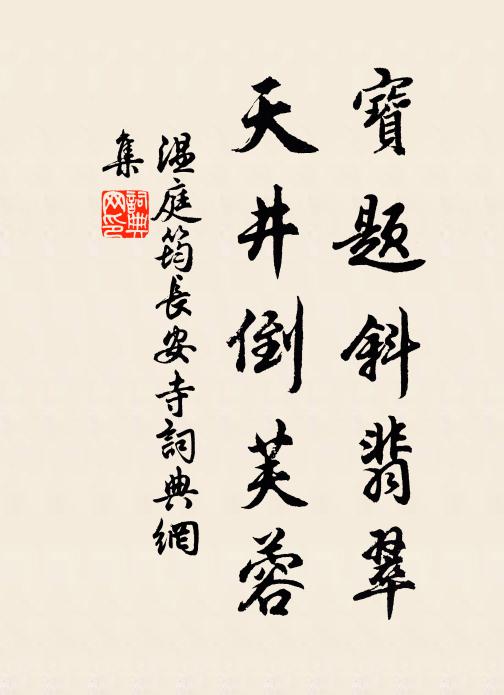 寶題斜翡翠
天井倒芙蓉
温庭筠長安寺詞典網
集
詞典網印